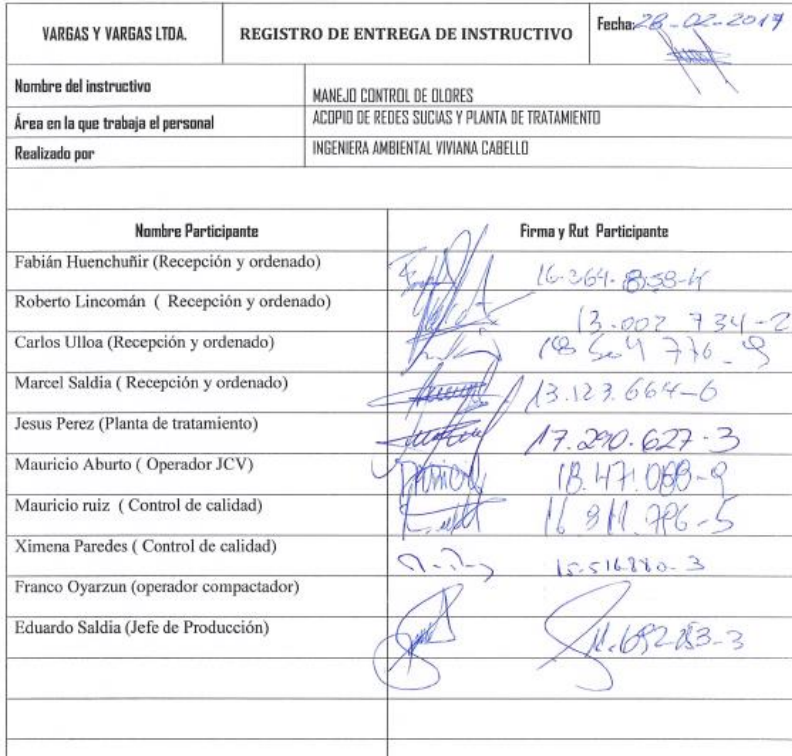 VARGAS Y VARGAS LTDA.
REGISTRO DE ENTREGA DE INSTRUCTIVO
Fecha: 28-02-2017
Nombre del instructivo
MANEJO CONTROL DE OLORES
Área en la que trabaja el personal
ACOPIO DE REDES SUCIAS Y PLANTA DE TRATAMIENTO
Realizado por
INGENIERA AMBIENTAL VIVIANA CABELLO
Nombre Participante
Firma y Rut Participante
Fabián Huenchuñir (Recepción y ordenado)
Roberto Lincomán ( Recepción y ordenado)
13.002 734-2
Carlos Ulloa (Recepción y ordenado)
Marcel Saldia ( Recepción y ordenado)
13.123.664-6
Jesus Perez (Planta de tratamiento)
17.290.627-3
Mauricio Aburto ( Operador JCV)
Mauricio ruiz ( Control de calidad)
Ximena Paredes ( Control de calidad)
Franco Oyarzun (operador compactador)
Eduardo Saldia (Jefe de Producción)